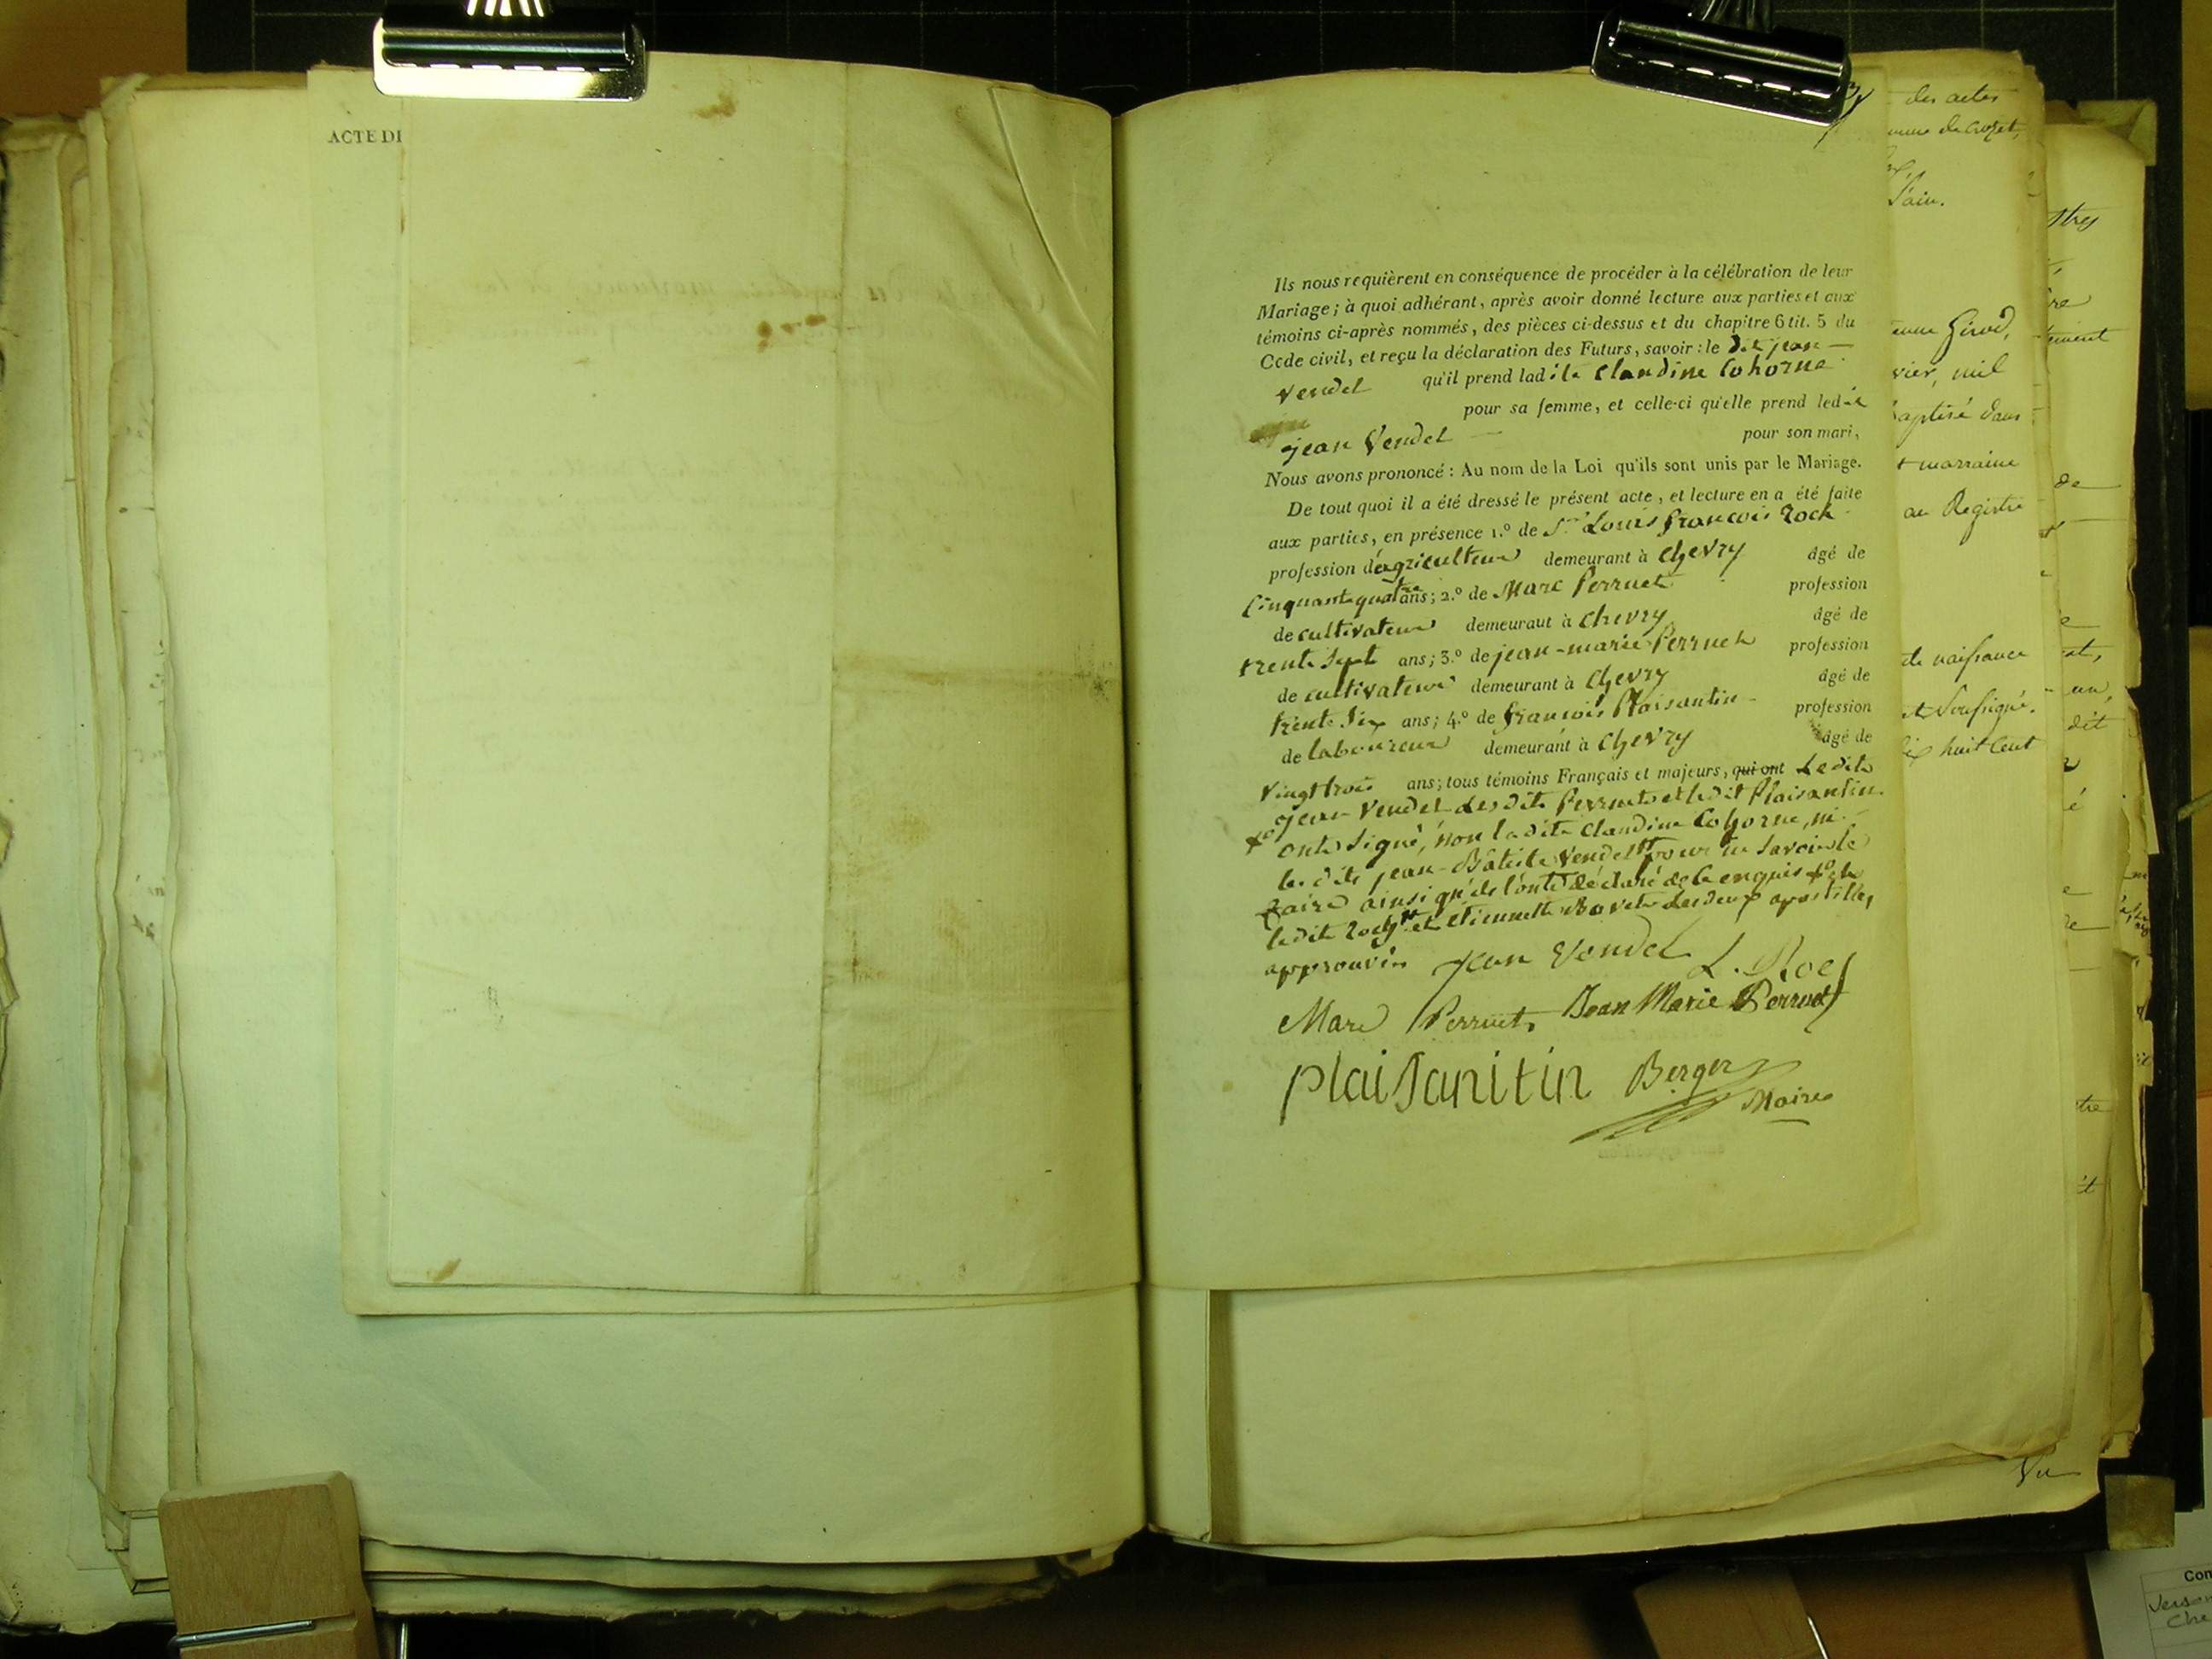 ACTE DE
Ils nous requièrent en conséquence de procéder à la célébration de leur
Mariage ; à quoi adhérant, après avoir donné lecture aux parties et aux
témoins ci-après nommés, des pièces ci-dessus et du chapitre 6 tit. 5 du
Code civil, et reçu la déclaration des Futurs, savoir : le dit jean
Vendel qu'il prend ladite Claudine Cohorne
pour sa femme, et celle-ci qu'elle prend ledit
jean Vendel pour son mari,
Nous avons prononcé : Au nom de la Loi qu'ils sont unis par le Mariage.
De tout quoi il a été dressé le présent acte, et lecture en a été faite
aux parties, en présence 1.º de Sr Louis françois Roch
profession d'agriculteur demeurant à Chevry âgé de
Cinquant quatre ans ; 2.º de Marc Perruet profession
de cultivateur demeuraut à Chevry âgé de
trente Sept ans ; 3.º de jean-marie Perruet profession
de cultivateur demeurant à Chevry âgé de
trente Six ans ; 4.º de françois Plaisantin profession
de laboureur demeurant à Chevry âgé de
Vingt trois ans ; tous témoins Français et majeurs, qui ont Ledit
jean Vendel Lesdits Perruets et ledit Plaisantin
onts Signé, non la dite Claudine Cohorne, ni
le dits jean-Batiste Vendel pour ne Savoir le
faire ainsi qu'ils l'onts déclaré de ce enquis
le dit Roch et etiennette Bovet Les deux apostilles
approuvés Jean Vendel L. Roch
Marc Perruet Jean Marie Perruet
plaisanitin Berger
Maire
des actes
de Crozet,
l'ain.
Girod,
mil
baptisé dans
marraine
au Registre
de naissance
et Soussigné.
huit Cent
de
un,
dit
Vu